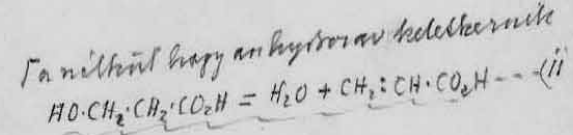 a nélkül hogy anhydrosav keletkeznék
HO·CH₂·CH₂·CO₂H = H₂O + CH₂:CH·CO₂H---(ii